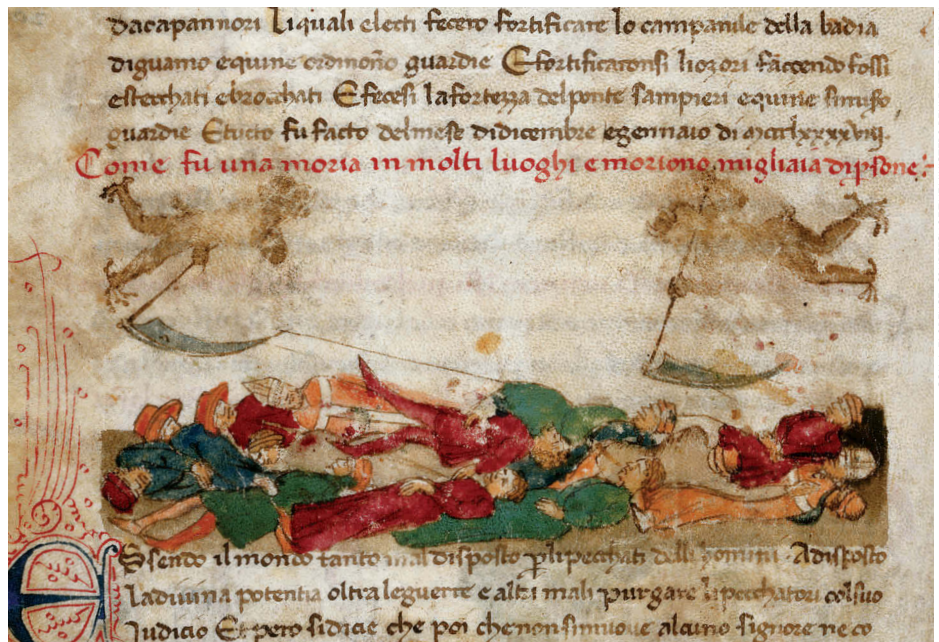 dacapannori Liquali electi fecero fortificare lo campanile della badia
diguamo equine ordinoño guardie Efortificaronsi li
estecchati ebrocchati Efecesi lafortezza delponte sampieri equine
guardie Etucto fu facto delmese didicembre egennaio di
Come fu una moria in molti luoghi e moriono migliaia dipsone
Essendo il mondo tanto mal disposto p lipecchati delli homini Adisposto
Ladivina potentia oltra leguerre e altri mali purgare lipecchatori colsuo
Judicio Et pero sidicie che poi che non simuove alcuno signore ne co